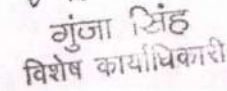 गुंजा सिंह
विशेष कार्याधिकारी